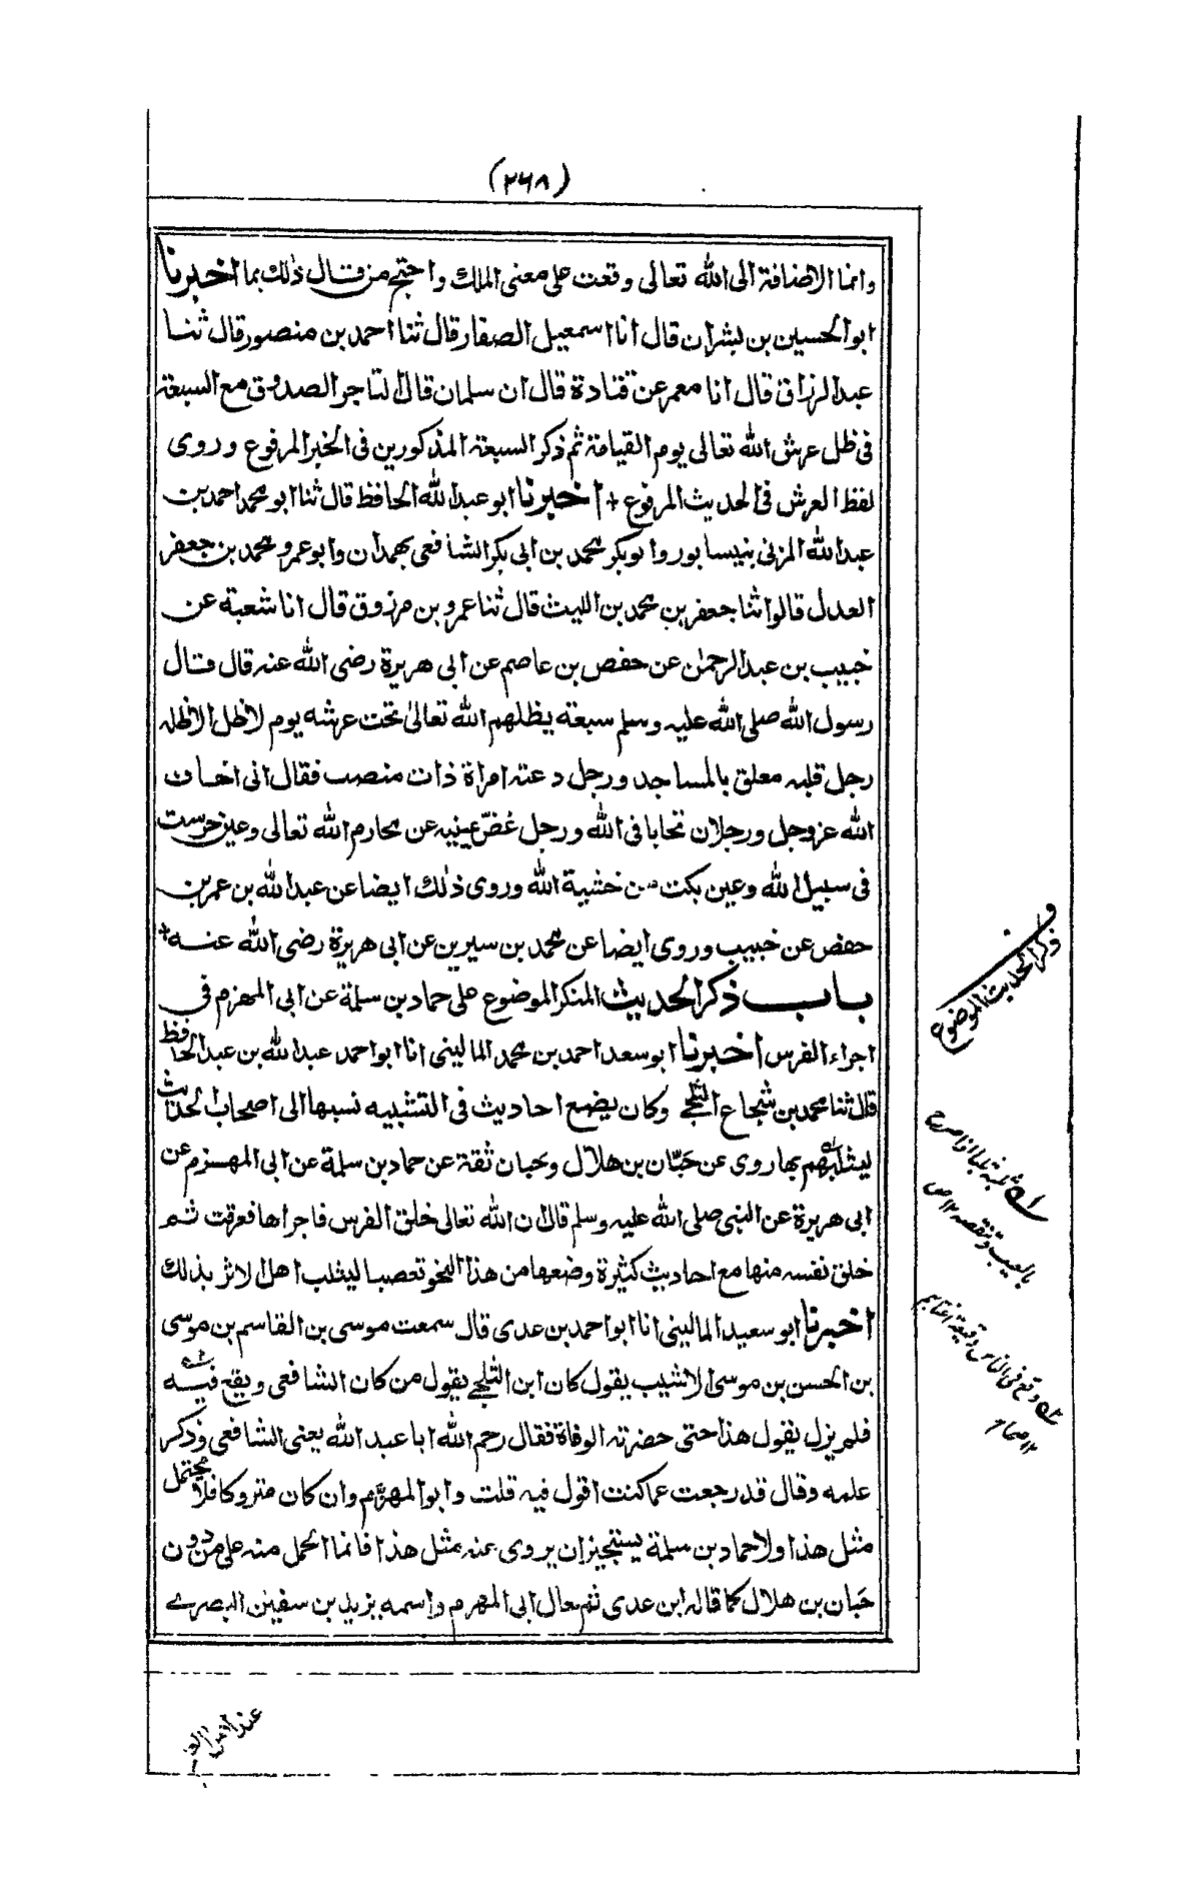 (٢٦٨)
وانما الاضافة الى الله تعالى وقعت على معنى الملك واحتج من قال ذلك بما اخبرنا
ابو الحسين بن بشران قال انا اسمعيل الصفار قال ثنا احمد بن منصور قال ثنا
عبد الرزاق قال انا معمر عن قتادة قال ان سلمان قال التاجر الصدوق مع السبعة
فى ظل عرش الله تعالى يوم القيامة ثم ذكر السبعة المذكورين فى الخبر المرفوع وروى
لفظ العرش فى الحديث المرفوع + اخبرنا ابو عبد الله الحافظ قال ثنا ابو محمد احمد بن
عبد الله المزنى بنيسابور وابوبكر محمد بن ابى بكر الشافعى بهمدان وابو عمرو محمد بن جعفر
العدل قالوا ثنا جعفر بن محمد بن الليث قال ثنا عمرو بن مرزوق قال انا شعبة عن
خبيب بن عبد الرحمن عن حفص بن عاصم عن ابى هريرة رضى الله عنه قال قال
رسول الله صلى الله عليه وسلم سبعة يظلهم الله تعالى تحت عرشه يوم لا ظل الا ظله
رجل قلبه معلق بالمساجد ورجل دعته امراة ذات منصب فقال انى اخاف
الله عزوجل ورجلان تحابا فى الله ورجل غضّ عينيه عن محارم الله تعالى وعين حرست
فى سبيل الله وعين بكت من خشية الله وروى ذلك ايضا عن عبد الله بن عمر بن
حفص عن خبيب وروى ايضا عن محمد بن سيرين عن ابى هريرة رضى الله عنه +
باب ذكر الحديث المنكر الموضوع على حماد بن سلمة عن ابى المهزم فى
اجراء الفرس اخبرنا ابو سعد احمد بن محمد المالينى انا ابو احمد عبد الله بن عبد الحافظ
قال ثنا محمد بن شجاع الثلجى وكان يضع احاديث فى التشبيه نسبها الى اصحاب الحديث
ليثلبهم بها روى عن حبّان بن هلال وحبان ثقة عن حماد بن سلمة عن ابى المهزم عن
ابى هريرة عن النبى صلى الله عليه وسلم قال ان الله تعالى خلق الفرس فاجراها فعرقت ثم
خلق نفسه منها مع احاديث كثيرة وضعها من هذا النحو تعصبا ليثلب اهل الاثر بذلك
اخبرنا ابو سعيد المالينى انا ابو احمد بن عدى قال سمعت موسى بن القاسم بن موسى
بن الحسن بن موسى الاشيب يقول كان ابن الثلجى يقول من كان الشافعى ويقع فيه
فلم يزل يقول هذا حتى حضرته الوفاة فقال رحم الله ابا عبد الله يعنى الشافعى وذكر
علمه وقال قد رجعت عما كنت اقول فيه قلت وابو المهزم وان كان متروكا فلا يحتمل
مثل هذا ولا حماد بن سلمة يستجيز ان يروى عنه مثل هذا فانما الحمل منه على من دون
حبان بن هلال كما قاله ابن عدى ثم حال ابى المهزم واسمه يزيد بن سفين البصرے
ذكر الحديث الموضوع
بالعيب وتنقصه ١٢ ص
وقع فى الناس وقيعة اغتابهم
١٢ صحاح